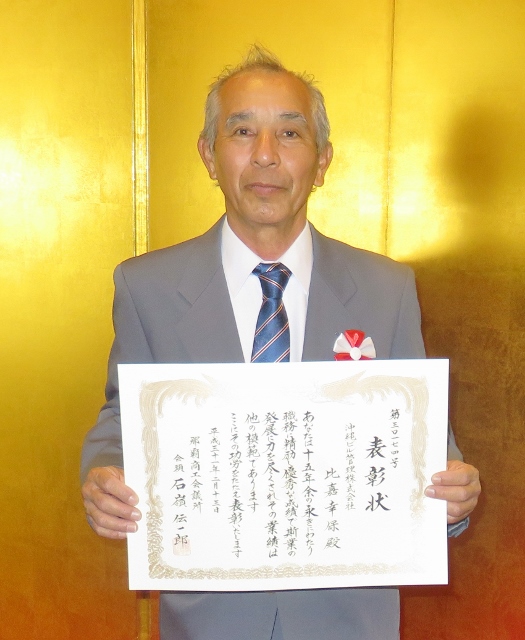 第三〇一七四号
表彰状
沖縄ビル管理株式会社
比嘉幸保殿
あなたは十五年余の永きにわたり
職務に精励し優秀な成績で斯業の
発展に力を尽くされその業績は
他の模範であります
ここにその功労をたたえ表彰いたします
平成三十一年二月十三日
那覇商工会議所
会頭 石嶺伝一郎